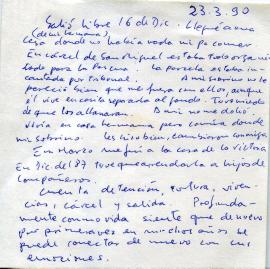 23.3.90
Salió libre 16 de Dic. Llegué a una
(de su hermana)
casa donde no había nada pa comer
En cárcel de San Miguel estaba todo organi
zado para la Pascua. La parcela estaba in
cautada por tribunal. A mi sobrino no le
pareció bien que me fuera con ellos, aunque
él vive en
de que los allanaran. A mí no me dolió
vivía en casa hermana y comía donde
mi sobrino.
En Marzo me fui a la casa de la victoria
En Dic. del 87 tuve que arrendarla a hijos de
compañeros.
Cuenta detención, tortura, viven
cias, cárcel y salida. Profunda
mente conmovida siente que de nuevo
por primera vez en muchos años se
puede conectar de nuevo con sus
emociones.